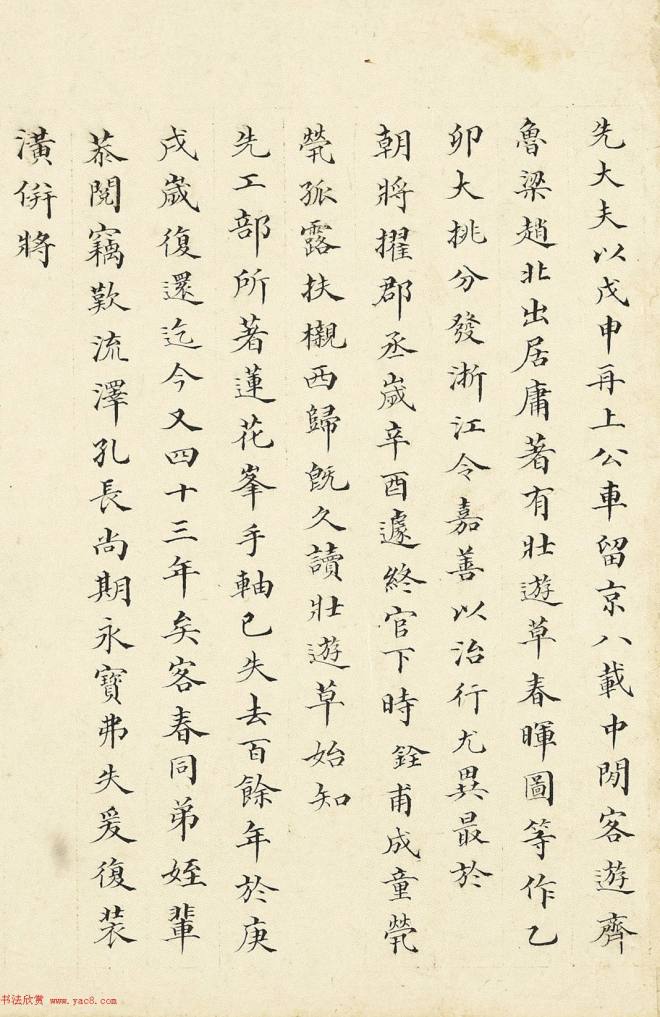 先大夫以戊申再上公車留京八載中閒客遊齊
魯梁趙北出居庸著有壯遊草春暉圖等作乙
卯大挑分發浙江令嘉善以治行尤異最於
朝將擢郡丞歲辛酉遽終官下時銓甫成童煢
煢孤露扶櫬西歸旣久讀壯遊草始知
先工部所著蓮花峯手軸已失去百餘年於庚
戌歲復還迄今又四十三年矣客春同弟姪輩
恭閱竊歎流澤孔長尚期永寶弗失爰復裝
潢併將
书法欣赏 www.yac8.com